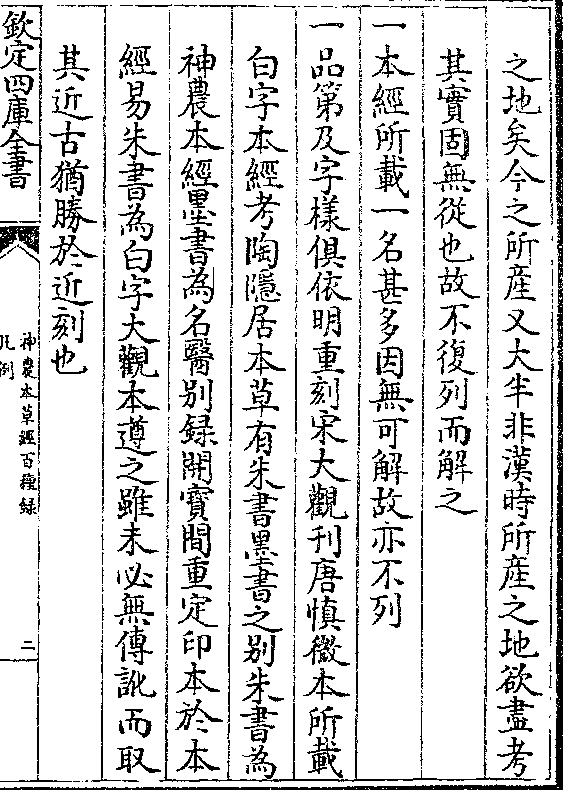 之地矣今之所産又大半非漢時所産之地欲盡考
其實固無從也故不復列而解之
一本經所載一名甚多因無可解故亦不列
一品第及字様俱依明重刻宋大觀刊唐慎微本所載
白字本經考陶隱居本草有朱書墨書之别朱書為
神農本經墨書為名醫别録開寳間重定印本於本
經易朱書為白字大觀本遵之雖未必無傳訛而取
其近古猶勝於近刻也
欽定四庫全書
神農本草經百種録
凡例
二